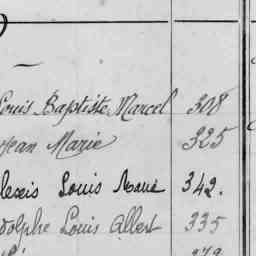 Louis Baptiste Marcel 308
Jean Marie 325
lexis Louis 342.
dolphe Louis Albert 335